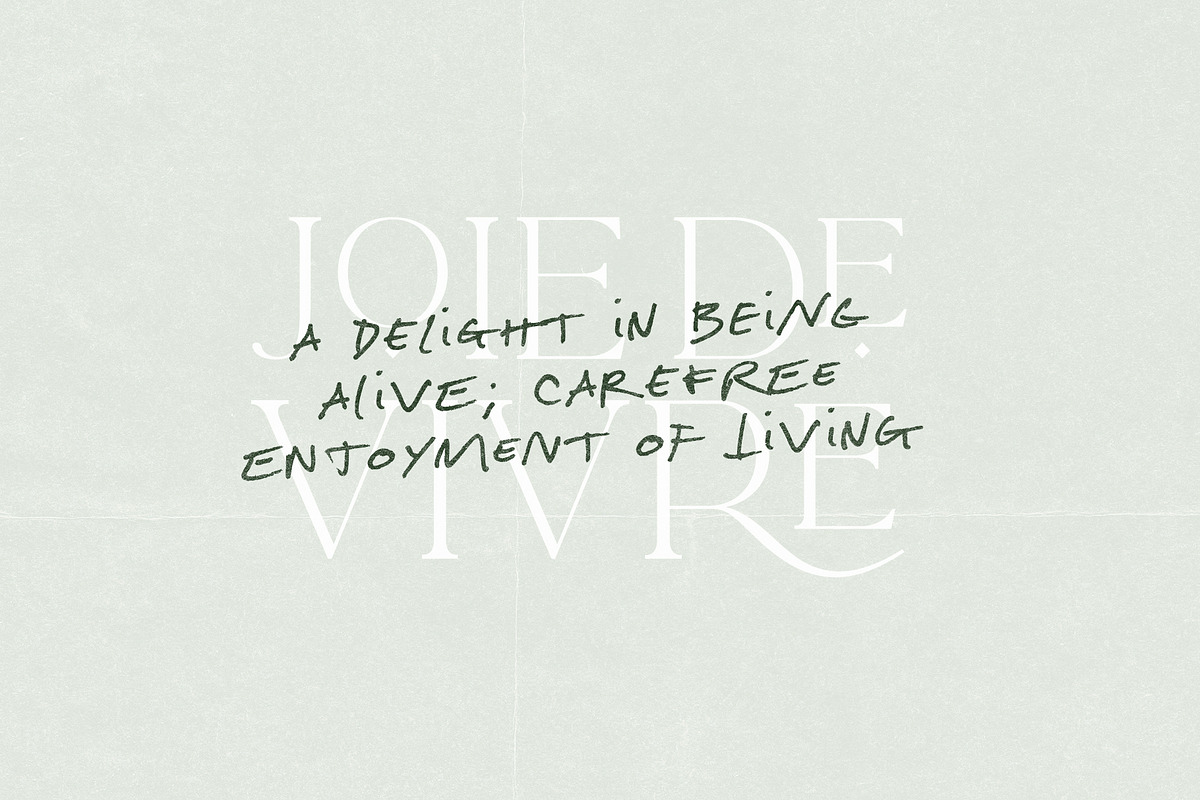 JOIE DE
VIVRE
A DELiGHT iN BEiNG
AliVE; CAREFREE
ENJOYMENT OF LiViNG